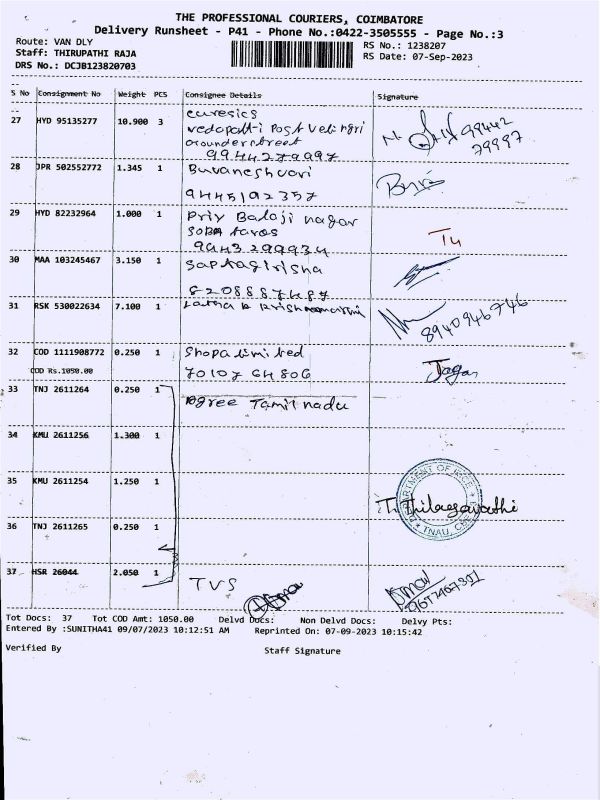 THE PROFESSIONAL COURIERS, COIMBATORE
Delivery Runsheet - P41 - Phone No.:0422-3505555 - Page No.:3
Route: VAN DLY
Staff: THIRUPATHI RAJA
DRS No.: DCJB123820703
RS No.: 1238207
RS Date: 07-Sep-2023
S No Consignment No Weight PCS Consignee Details Signature
27 HYD 95135277 10.900 3
99442
79997
9944279997
28 JPR 502552772 1.345 1 Buvaneshwari
9445192357
29 HYD 82232964 1.000 1 Priy Balaji nagar
30 MAA 103245467 3.150 1 Saptagirisha
8208887487
31 RSK 530022634 7.100 1
8940946746
32 COD 1111908772 0.250 1 Shopa limited
COD Rs.1050.00 70107 64806 Jagan
33 TNJ 2611264 0.250 1 Agree Tamil nadu
34 KMU 2611256 1.300 1
35 KMU 2611254 1.250 1
DEPARTMENT OF RICE
T. Thilagavathi
TNAU, CBE
36 TNJ 2611265 0.250 1
37 HSR 26044 2.050 1 TVS
Tot Docs: 37 Tot COD Amt: 1050.00 Delvd Docs: Non Delvd Docs: Delvy Pts:
Entered By :SUNITHA41 09/07/2023 10:12:51 AM Reprinted On: 07-09-2023 10:15:42
Verified By Staff Signature